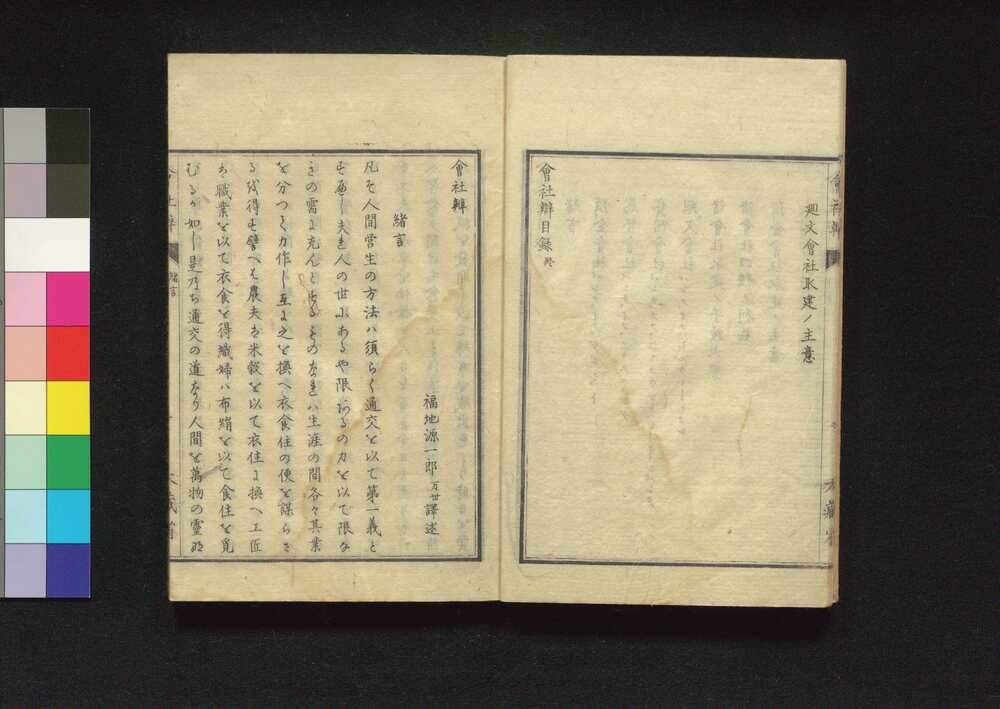 廻文會社取建ノ主意
會社辯目録終
會社辯
緒言
福地源一郎万世譯述
凡そ人間営生の方法ハ須らく通交を以て第一義と
夫れ人の世にあるや限りあるの力を以て限な
きの需に充んとするものなれハ生涯の間各々其業
を分つて力作し互に之を換へ衣食住の便を謀らさ
る譬へは農夫ハ米穀を以て衣住に換へ工匠
ハ職業を以て衣食を得織婦ハ布絹を以て食住を覓
むるか如し是乃ち通交の道なり人間を萬物の靈
會社辯
緒言
大藏省